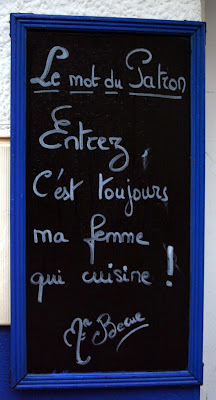 Le mot du Patron
Entrez,
C'est toujours
ma femme
qui cuisine !